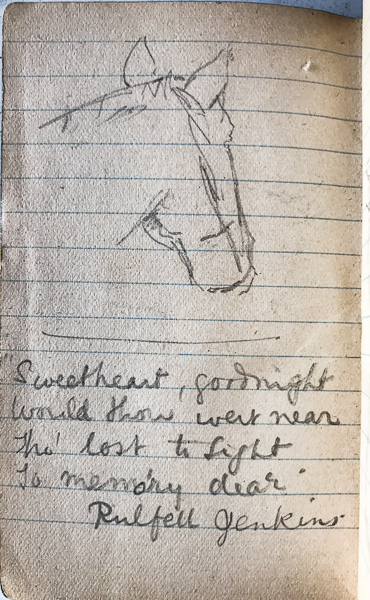 "Sweetheart, goodnight
Would thou wert near
Tho' lost to sight
To memory dear"
Rulfell Jenkins